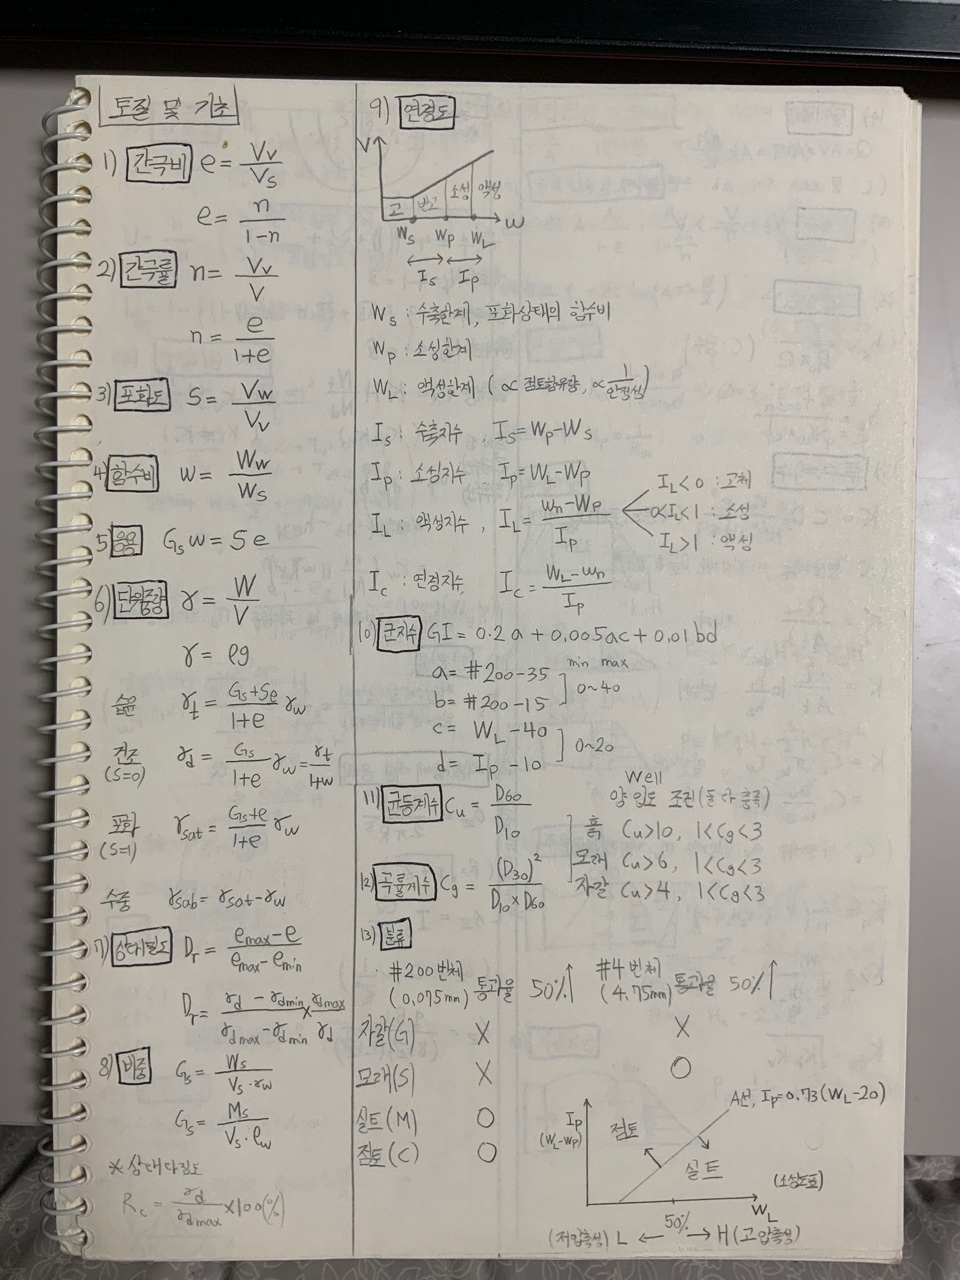 토질 및 기초
1) 간극비 e = Vv / Vs
e = n / 1-n
2) 간극률 n = Vv / V
n = e / 1+e
3) 포화도 S = Vw / Vv
4) 함수비 w = Ww / Ws
5) 응용 Gs w = S e
6) 단위중량 γ = W / V
γ = ρg
습윤 γt = Gs+Se / 1+e γw
건조 (S=0) γd = Gs / 1+e γw = γt / 1+w
포화 (S=1) γsat = Gs+e / 1+e γw
수중 γsub = γsat - γw
7) 상대밀도 Dr = emax - e / emax - emin
Dr = γd - γdmin / γdmax - γdmin × γdmax / γd
8) 비중 Gs = Ws / Vs·γw
Gs = Ms / Vs·ρw
※ 상대다짐도
Rc = γd / γdmax × 100(%)
9) 연경도
V
고 반고 소성 액성
w
Ws Wp WL
Is Ip
Ws : 수축한계, 포화상태의 함수비
Wp : 소성한계
WL : 액성한계 (∝ 점토함유량, ∝ 1 / 안정성)
Is : 수축지수, Is = Wp - Ws
Ip : 소성지수 Ip = WL - Wp
IL : 액성지수, IL = wn - Wp / Ip
IL < 0 : 고체
0<IL<1 : 소성
IL>1 : 액성
Ic : 연경지수, Ic = WL - wn / Ip
10) 군지수 GI = 0.2a + 0.005ac + 0.01bd
min max
a = #200-35
b = #200-15
0~40
c = WL-40
d = Ip-10
0~20
11) 균등계수 Cu = D60 / D10
Well
양입도 조건(둘 다 충족)
흙 Cu>10, 1<Cg<3
모래 Cu>6, 1<Cg<3
자갈 Cu>4, 1<Cg<3
12) 곡률계수 Cg = (D30)² / D10 × D60
13) 분류
· #200번체 (0.075mm) 통과율 50%↑
#4번체 (4.75mm) 통과율 50%↑
자갈(G) X X
모래(S) X O
실트(M) O
점토(C) O
Ip
(WL-Wp)
A선, Ip=0.73(WL-20)
점토
실트
(소성도표)
50%
WL
(저압축성) L ← → H (고압축성)